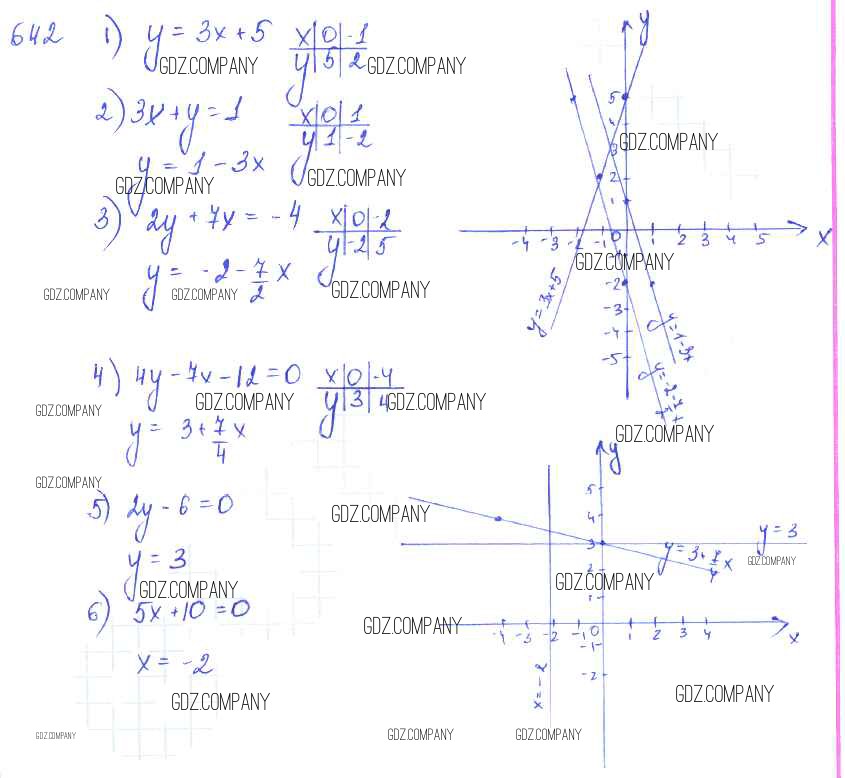 642 1) y = 3x + 5 x 0 -1
y 5 2
GDZ.COMPANY GDZ.COMPANY
2) 3x + y = 1 x 0 1
y 1 -2
y = 1 - 3x
GDZ.COMPANY GDZ.COMPANY
3) 2y + 7x = -4 x 0 -2
y -2 5
y = -2 - 7/2 x
GDZ.COMPANY GDZ.COMPANY GDZ.COMPANY
4) 4y - 7x - 12 = 0 x 0 -4
y 3 4
GDZ.COMPANY GDZ.COMPANY GDZ.COMPANY
y = 3 + 7/4 x
GDZ.COMPANY
5) 2y - 6 = 0
GDZ.COMPANY
y = 3
GDZ.COMPANY
6) 5x + 10 = 0
GDZ.COMPANY
x = -2
GDZ.COMPANY
GDZ.COMPANY GDZ.COMPANY GDZ.COMPANY
y
5
4
3
2
1
GDZ.COMPANY
-4 -3 -2 -1 0 1 2 3 4 5 x
GDZ.COMPANY
-2
-3
-4
-5
y = 3x + 5
y = 1 - 3x
y = -2 - 7/2 x
GDZ.COMPANY
y
5
4
3
2
1
y = 3
y = 3 + 7/4 x
GDZ.COMPANY
GDZ.COMPANY
-4 -3 -2 -1 0 1 2 3 4 x
-1
-2
x = -2
GDZ.COMPANY